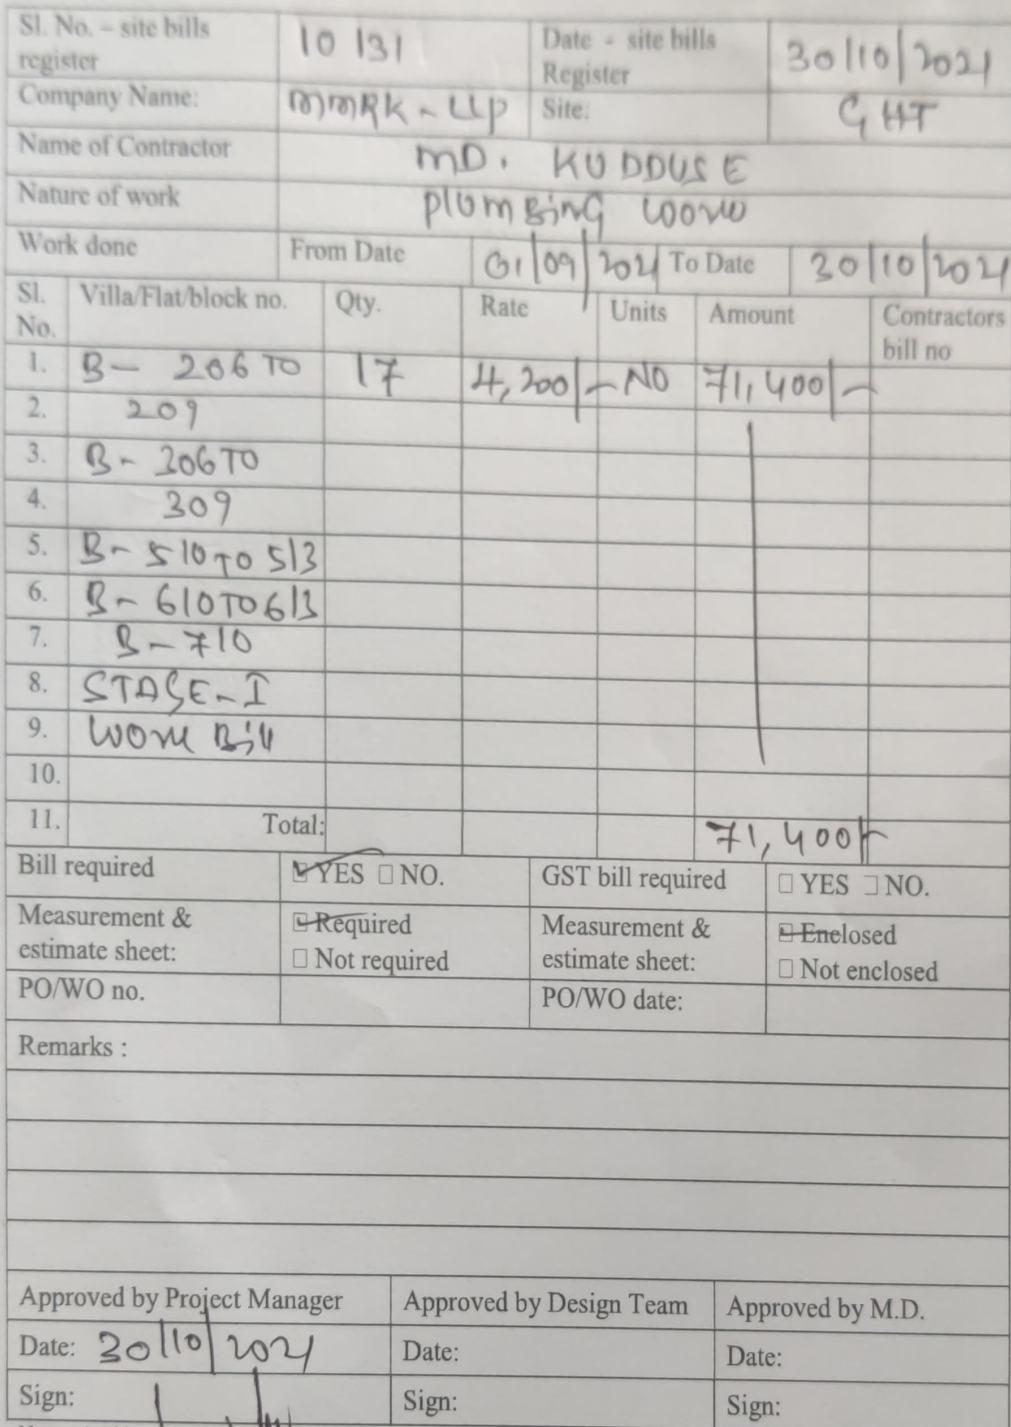 Sl. No. – site bills register 10131 Date - site bills Register 30/10/2021
Company Name: MMRK-LLP Site: GHT
Name of Contractor MD. KUDDUSE
Nature of work Plumbing work
Work done From Date 01/09/2021 To Date 30/10/2021
Sl. No. Villa/Flat/block no. Qty. Rate Units Amount Contractors bill no
1. B- 206 TO 17 4,200/- NO 71,400/-
2. 209
3. B- 306 TO
4. 309
5. B- 510 TO 513
6. B- 610 TO 613
7. B-710
8. STAGE-I
9. Work Bill
10.
11. Total: 71,400/-
Bill required ☑ YES ☐ NO. GST bill required ☐ YES ☐ NO.
Measurement & estimate sheet: ☑ Required ☐ Not required Measurement & estimate sheet: ☑ Enclosed ☐ Not enclosed
PO/WO no. PO/WO date:
Remarks :
Approved by Project Manager Approved by Design Team Approved by M.D.
Date: 30/10/2021 Date: Date:
Sign: Sign: Sign: